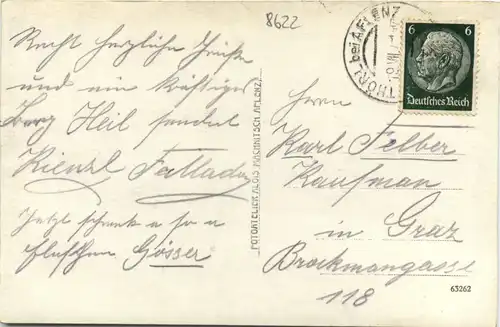 8622
Recht herzliche Grüße
und ein kräftiges
Berg Heil sendet
Kienzl
Jetzt schmeckt a so a
Flascherl Gösser
FOTOATELIER ALOIS MACHNITSCH AFLENZ
THÖRL bei AFLENZ
6 6
Deutsches Reich
Herrn
Karl Felber
Kaufman
in Graz
Brockmangasse
118
63262